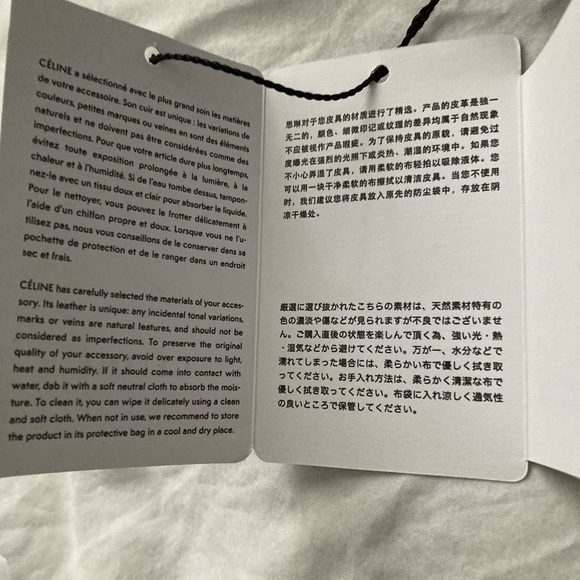 CÉLINE a sélectionné avec le plus grand soin les matières
de votre accessoire. Son cuir est unique : les variations de
couleurs, petites marques ou veines en sont des éléments
naturels et ne doivent pas être considérées comme des
imperfections. Pour que votre article dure plus longtemps,
évitez toute exposition prolongée à la lumière, à la
chaleur et à l'humidité. Si de l'eau tombe dessus, tampon-
nez-le avec un tissu doux et clair pour absorber le liquide.
Pour le nettoyer, vous pouvez le frotter délicatement à
l'aide d'un chiffon propre et doux. Lorsque vous ne l'u-
tilisez pas, nous vous conseillons de le conserver dans sa
pochette de protection et de le ranger dans un endroit
sec et frais.
CÉLINE has carefully selected the materials of your acces-
sory. Its leather is unique: any incidental tonal variations,
marks or veins are natural features, and should not be
considered as imperfections. To preserve the original
quality of your accessory, avoid over exposure to light,
heat and humidity. If it should come into contact with
water, dab it with a soft neutral cloth to absorb the mois-
ture. To clean it, you can wipe it delicately using a clean
and soft cloth. When not in use, we recommend to store
the product in its protective bag in a cool and dry place.
思琳对于您皮具的材质进行了精选。产品的皮革是独一
无二的，颜色、细微印记或纹理的差异均属于自然现象
不应被视作产品瑕疵。为了保持皮具的原貌，请避免过
度曝光在强烈的光照下或炎热、潮湿的环境中。如果您
不小心弄湿了皮具，请用柔软的布轻拍以吸除液体。您
可以用一块干净柔软的布擦拭以清洁皮具。当您不使用
时，我们建议您将皮具放入原先的防尘袋中，存放在阴
凉干燥处。
厳選に選び抜かれたこちらの素材は、天然素材特有の
色の濃淡や傷などが見られますが不良ではございませ
ん。ご購入直後の状態を楽しんで頂く為、強い光・熱
・湿気などから避けてください。万が一、水分などで
濡れてしまった場合には、柔らかい布で優しく拭き取
ってください。お手入れ方法は、柔らかく清潔な布で
優しく拭き取ってください。布袋に入れ涼しく通気性
の良いところで保管してください。